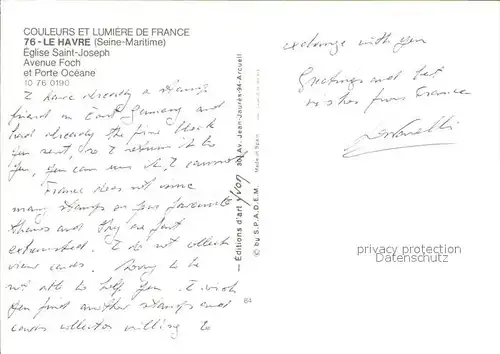 COULEURS ET LUMIÈRE DE FRANCE
76 - LE HAVRE (Seine-Maritime)
Église Saint-Joseph
Avenue Foch
et Porte Océane
10 76 0190
I have already a stamp
friend in East Germany and
had already the fine block
you sent, so I return it to
you, you can use it, I cannot
France does not issue
many stamps on your favourite
themes and they are fast
exhausted. I do not collect
view cards. Sorry to be
not able to help you. I wish
you find another stamps and
cards collector willing to
exchange with you
Greetings and best
wishes from France
— Éditions d'art Yvon
30, Av. Jean-Jaurès-94-Arcueil
Made in Spain
© by S.P.A.D.E.M.
84
privacy protection
Datenschutz